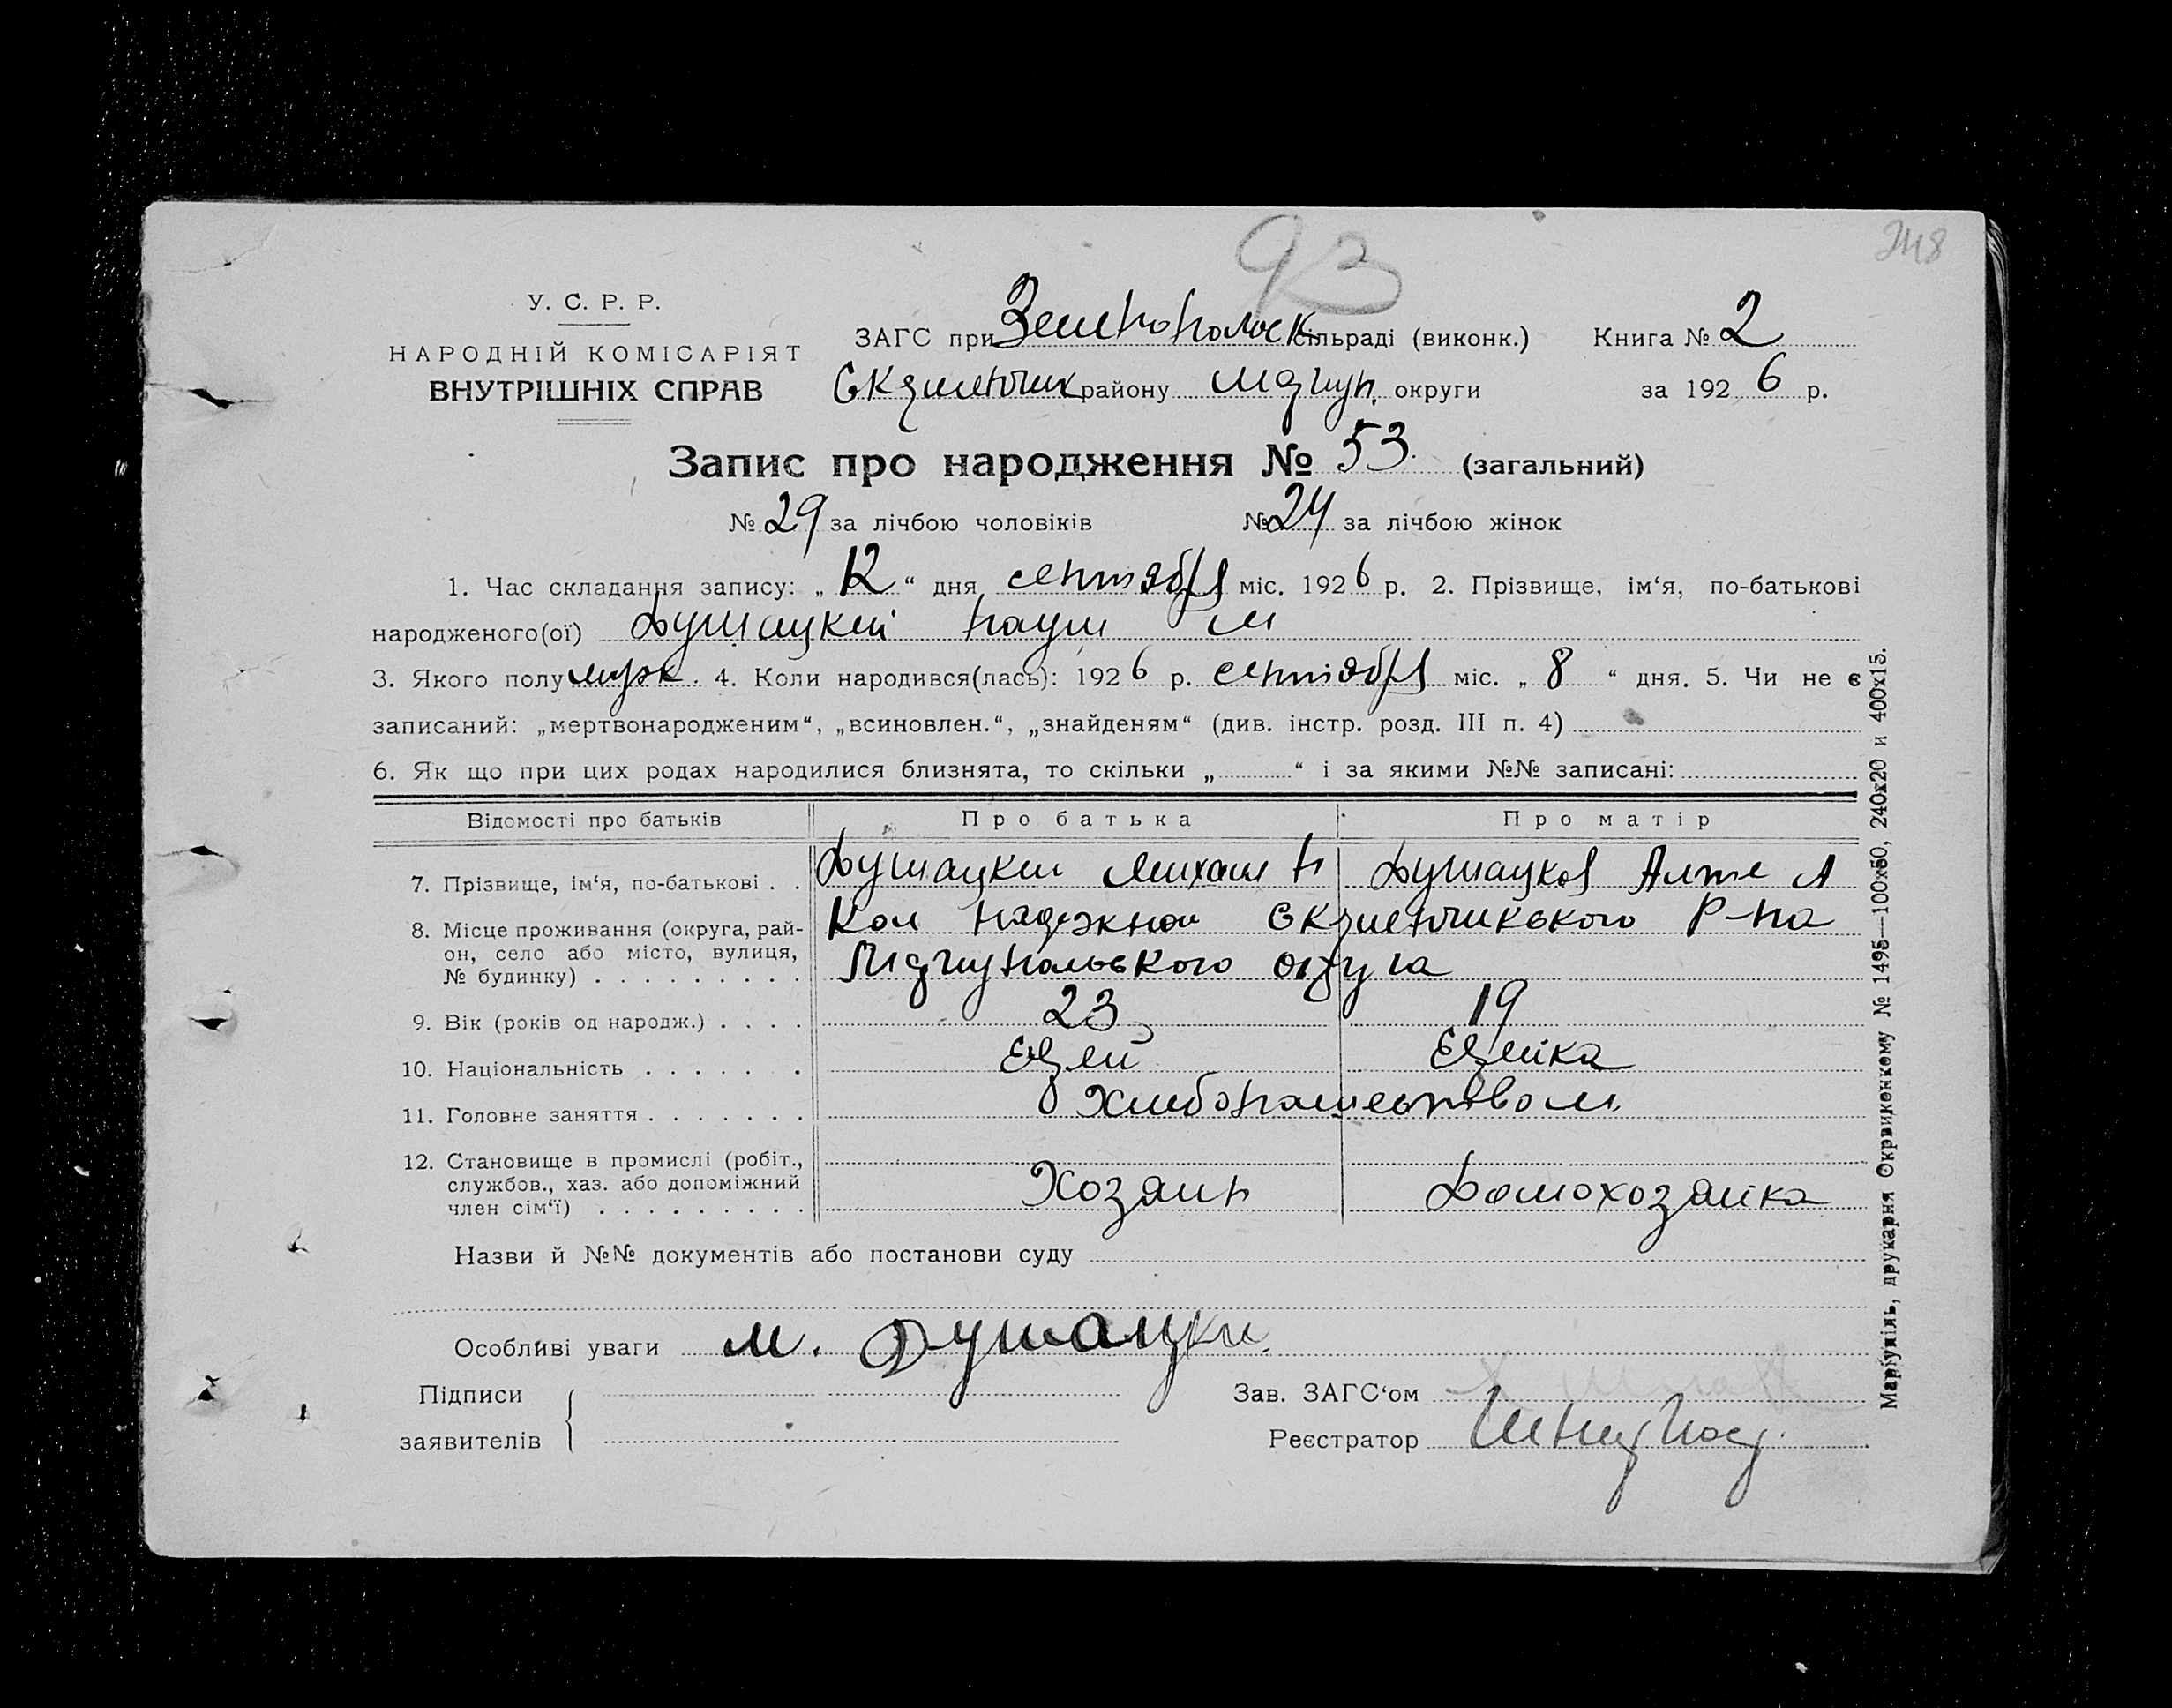 93
248
У. С. Р. Р.
НАРОДНІЙ КОМІСАРІЯТ
ВНУТРІШНІХ СПРАВ
ЗАГС при Зеленопольск сільраді (виконк.) Книга № 2
району округи за 1926 р.
Запис про народження № 53. (загальний)
№ 29 за лічбою чоловіків № 24 за лічбою жінок
1. Час складання запису: „12“ дня сентября міс. 1926 р. 2. Прізвище, ім‘я, по-батькові
народженого(ої) Душацкий Наум М
3. Якого полу муж. 4. Коли народився(лась): 1926 р. сентября міс. „8“ дня. 5. Чи не є
записаний: „мертвонародженим“, „всиновлен.“, „знайденям“ (див. інстр. розд. III п. 4)
6. Як що при цих родах народилися близнята, то скільки „ “ і за якими №№ записані:
Відомості про батьків Про батька Про матір
7. Прізвище, ім‘я, по-батькові . . Душацкий Михаил Н Душацкая А
8. Місце проживання (округа, рай- Кол Надежная Р-на
он, село або місто, вулиця, округа
№ будинку) . . . . . . . . .
9. Вік (років од народж.) . . . . 23 19
10. Національність . . . . . . . Еврей Еврейка
11. Головне заняття . . . . . . . Хлебопашеством
12. Становище в промислі (робіт.,
службов., хаз. або допоміжний Хозяин Домохозяйка
член сім‘ї) . . . . . . . . .
Назви й №№ документів або постанови суду
Особливі уваги М. Душацки
Підписи Зав. ЗАГС‘ом
заявителів Реєстратор
Маріупіль, друкарня Окрвиконкому № 1495—100х50, 240х20 и 400х15.